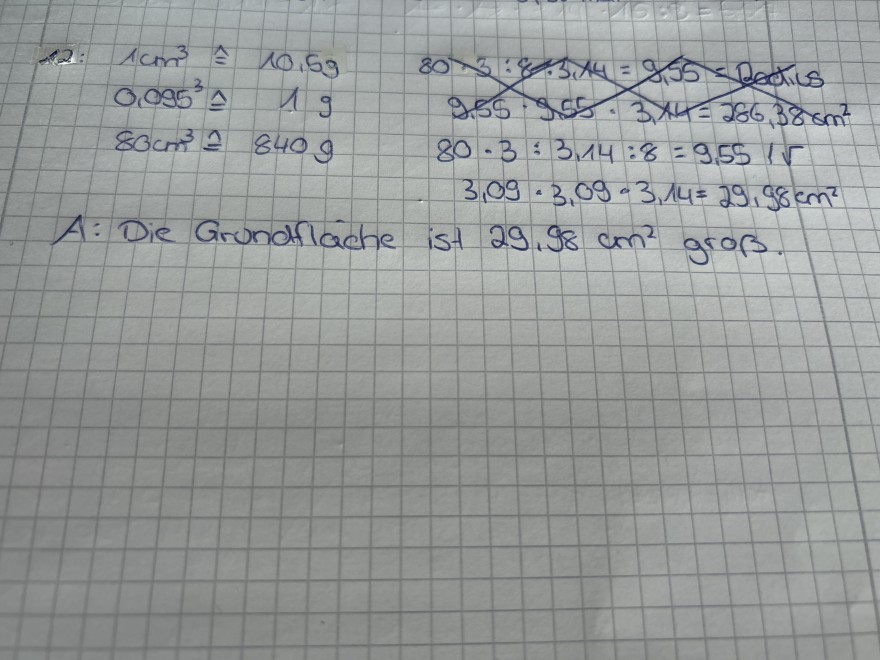 12: 1cm³ ≙ 10,5g
0,095³ ≙ 1 g
80cm³ ≙ 840g
80 · 3 : 8 · 3,14 = 9,55 = Radius
9,55 · 9,55 · 3,14 = 286,38cm²
80 · 3 : 3,14 : 8 = 9,55 /√
3,09 · 3,09 · 3,14 = 29,98cm²
A: Die Grundfläche ist 29,98 cm² groß.